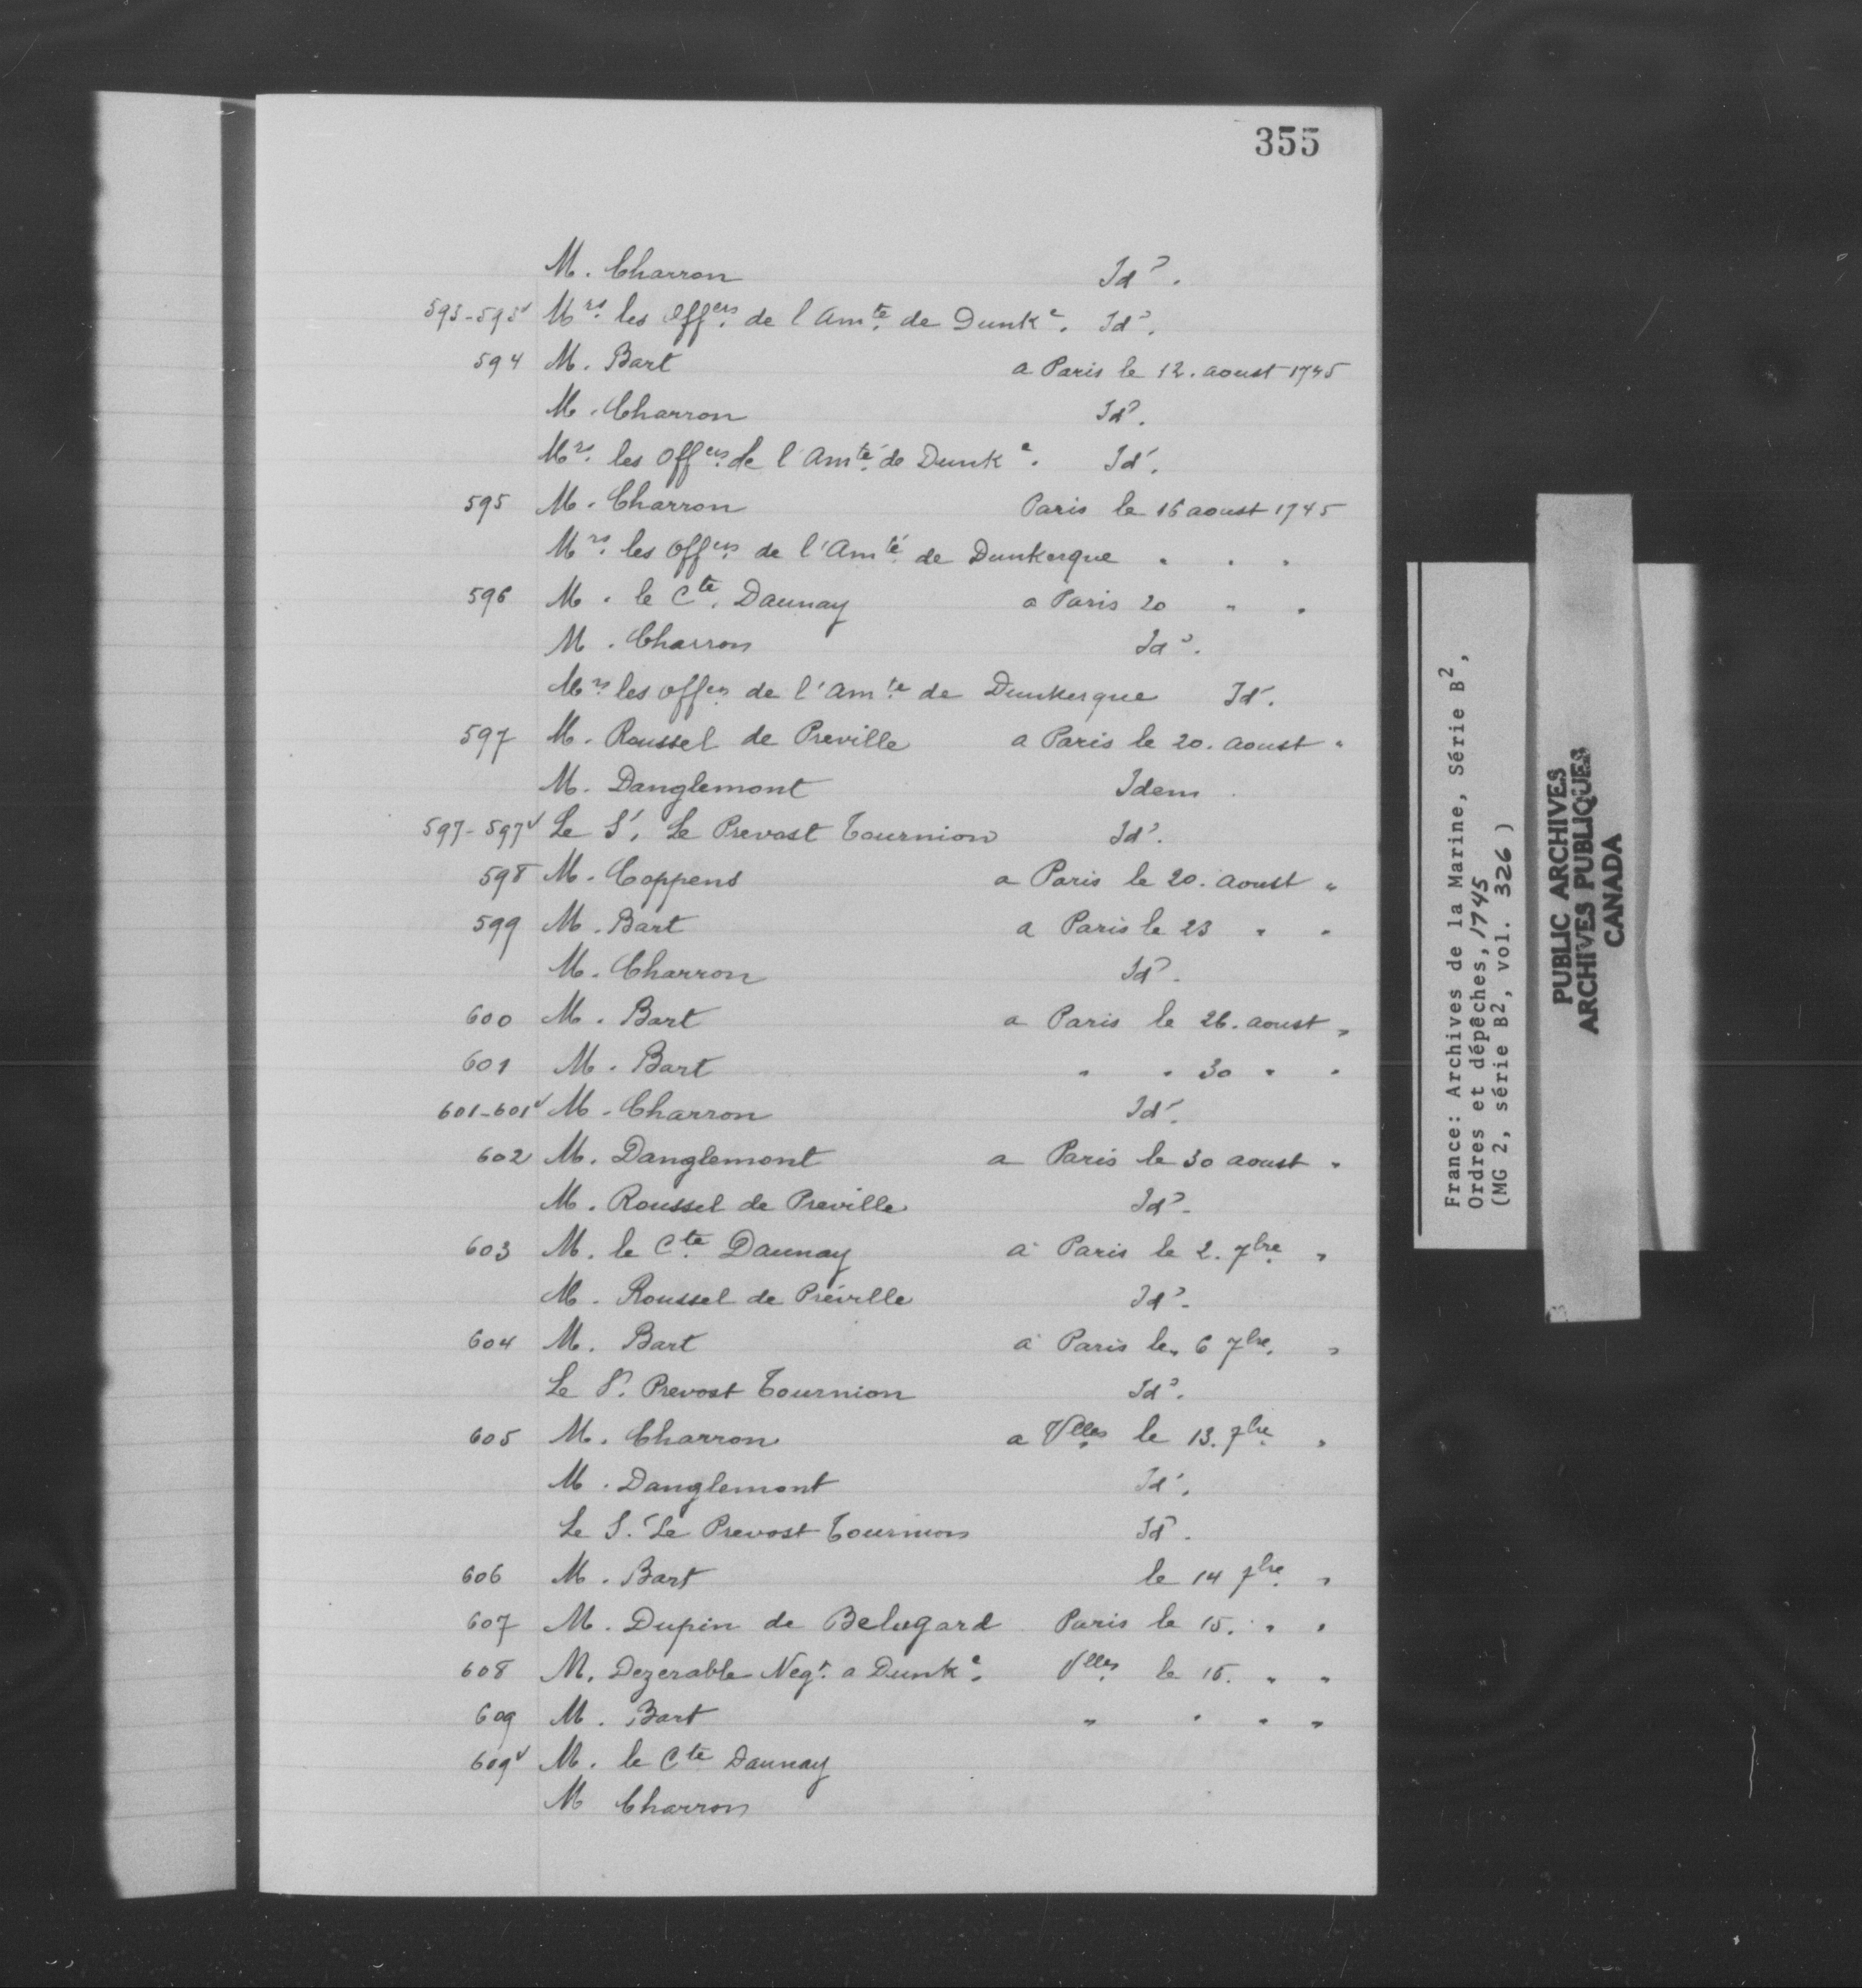 355
M. Charron Id?.
593-593v Mrs. les Offers. de l Amte. de Dunke. Id?.
594 M. Bart a Paris le 12. aoust 1745
M. Charron Id?.
Mrs. les Offers. de l'Amté. de Dunke. Id'.
595 M. Charron Paris le 16 aoust 1745
Mrs. les Offers. de l'Amté. de Dunkerque " " "
596 M. le Cte. Daunay a Paris 20 " "
M. Charron Id?.
Mrs. les offers. de l'Amte. de Dunkerque Id'.
597 M. Roussel de Preville a Paris le 20. aoust "
M. Danglemont Idem.
597-597v Le S'. Le Prevost Tournion Id?.
598 M. Coppens a Paris le 20. aoust "
599 M. Bart a Paris le 23 " "
M. Charron Id?.
600 M. Bart a Paris le 26. aoust "
601 M. Bart " " 30 " "
601-601v M. Charron Id'.
602 M. Danglemont a Paris le 30 aoust "
M. Roussel de Preville Id?.
603 M. le Cte. Daunay a Paris le 2. 7bre. "
M. Roussel de Préville Id?.
604 M. Bart a Paris le. 6 7bre. "
Le S?. Prevost Tournion Id?.
605 M. Charron a Vlles. le 13. 7bre. "
M. Danglemont Id'.
Le S.r Le Prevost Tournion Id?.
606 M. Bart le 14 7bre. "
607 M. Dupin de Belugard Paris le 15. " "
608 M. Dezerable Negt. a Dunke. Vlles. le 16. " "
609 M. Bart " " " "
609v M. le Cte Daunay
M Charron
France: Archives de la Marine, Série B2,
Ordres et dépêches, 1745
(MG 2, série B2, vol. 326)
PUBLIC ARCHIVES
ARCHIVES PUBLIQUES
CANADA